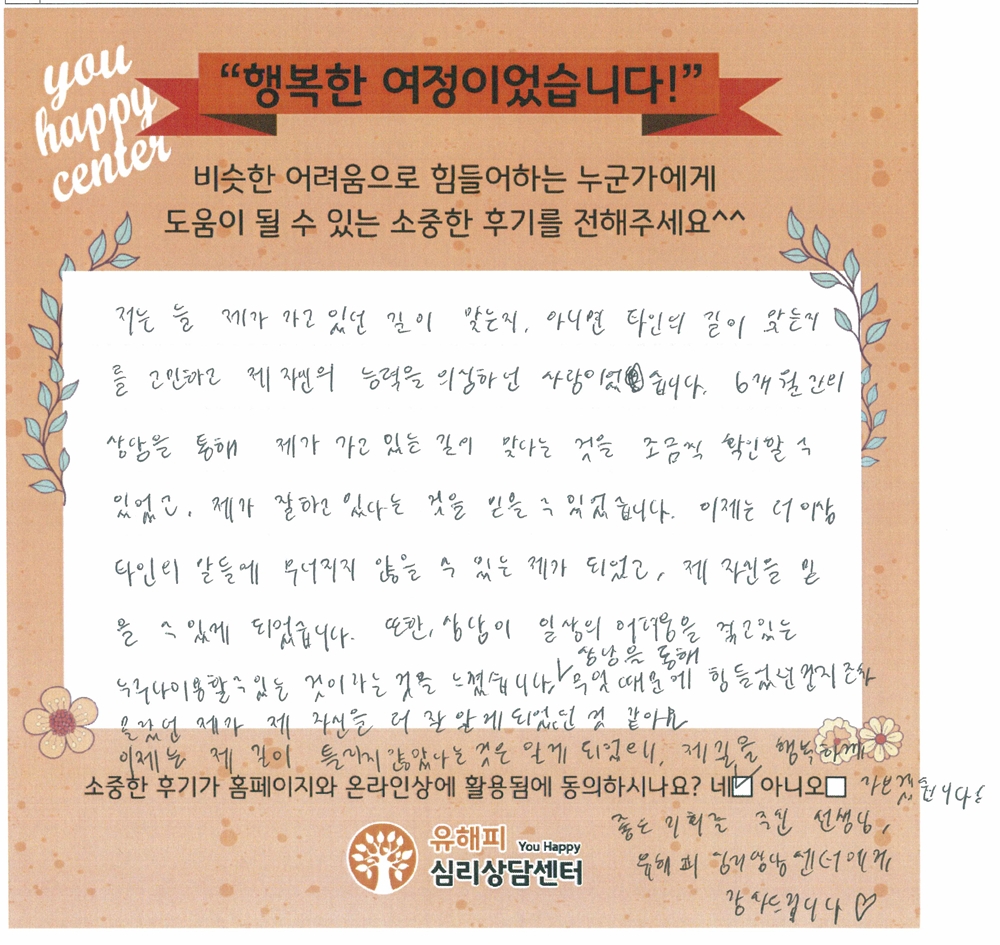 you
happy
center
“행복한 여정이었습니다!”
비슷한 어려움으로 힘들어하는 누군가에게
도움이 될 수 있는 소중한 후기를 전해주세요^^
저는 늘 제가 가고 있던 길이 맞는지, 아니면 타인의 길이 맞는지
를 고민하고 제 자신의 능력을 의심하던 사람이었습니다. 6개월간의
상담을 통해 제가 가고 있는 길이 맞다는 것을 조금씩 확인할 수
있었고, 제가 잘하고 있다는 것을 믿을 수 있었습니다. 이제는 더 이상
타인의 말들에 무너지지 않을 수 있는 제가 되었고, 제 자신을 믿
을 수 있게 되었습니다. 또한, 상담이 일상의 어려움을 겪고있는
누구나이용할수있는 것이라는 것을 느꼈습니다. 상담을 통해 무엇 때문에 힘들었던건지조차
몰랐던 제가 제 자신을 더 잘 알게되었던 것 같아요
이제는 제 길이 틀리지 않았다는 것은 알게 되었으니, 제길을 행복하게
가보겠습니다!
소중한 후기가 홈페이지와 온라인상에 활용됨에 동의하시나요? 네☑ 아니오□
좋은 기회를 주신 선생님,
유해피 심리상담센터에게
감사드립니다 ♡
유해피 You Happy
심리상담센터